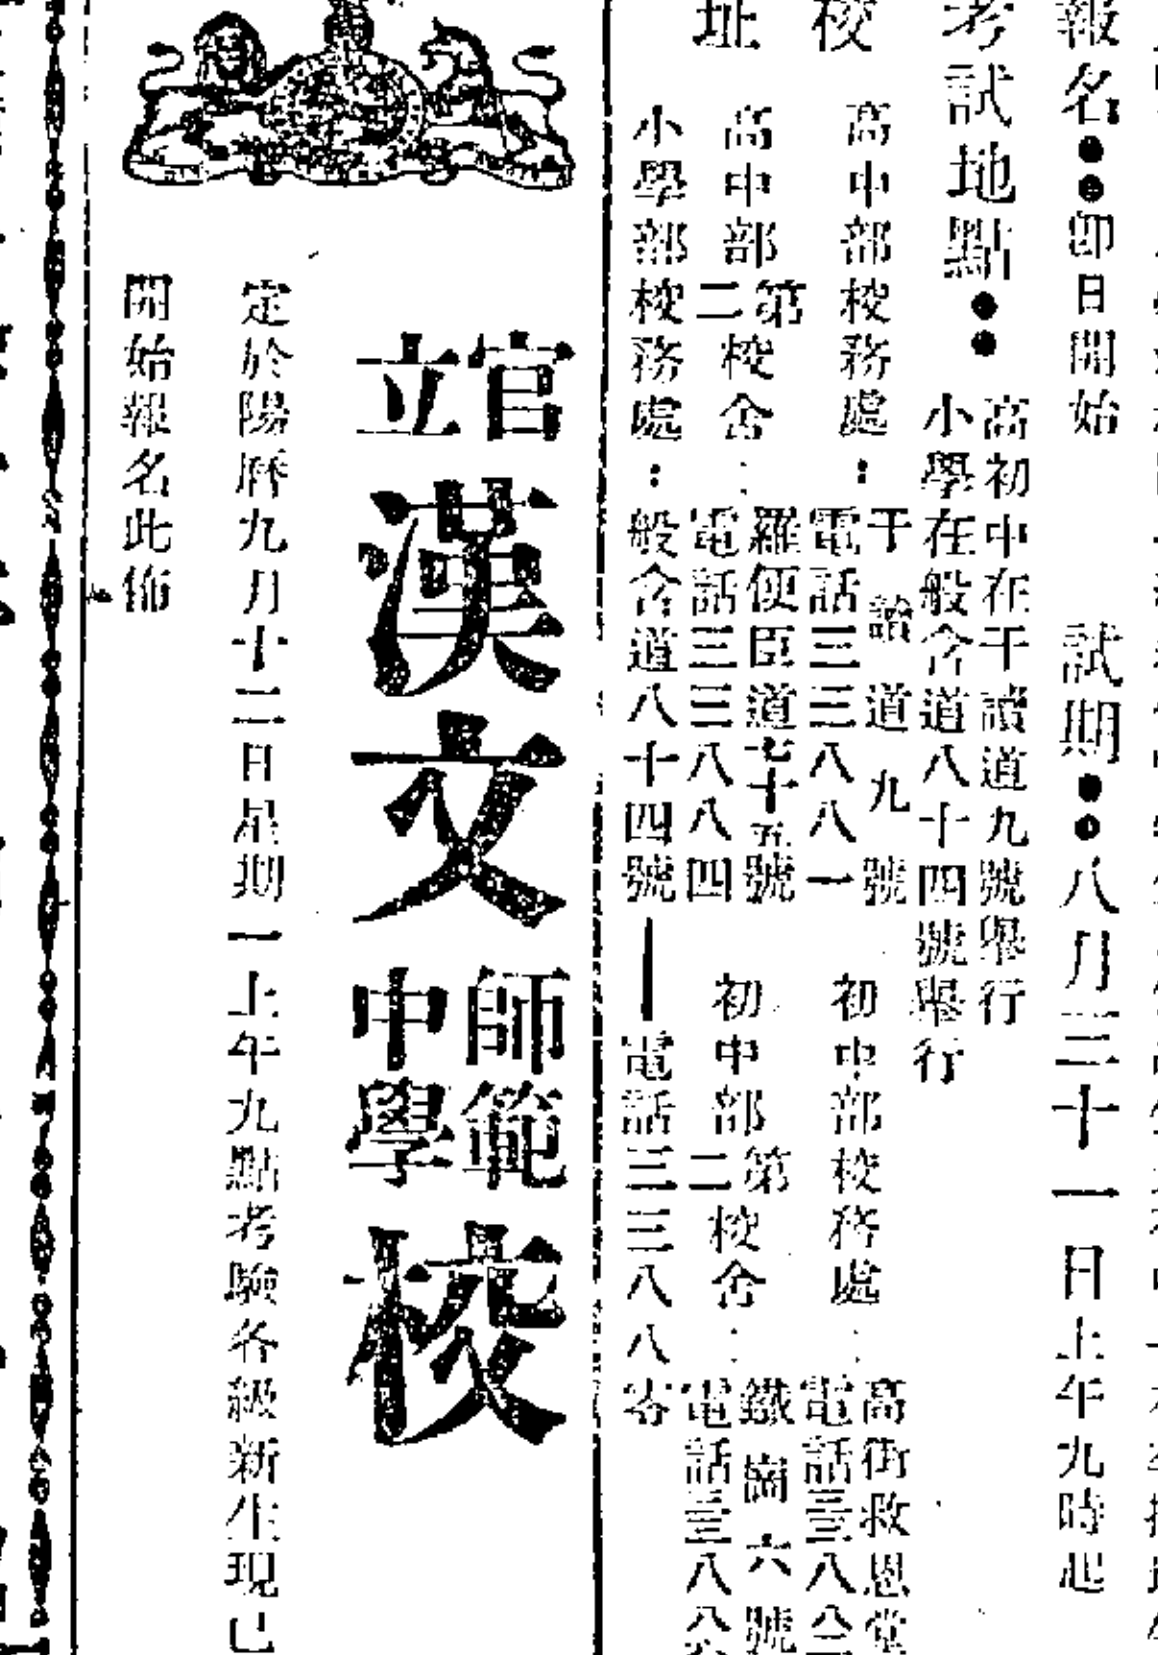 報名●●即日開始
試期●●八月三十一日上午九時起
考試地點●●
高初中在干讀道九號舉行
小學在般含道八十四號舉行
校址
高中部校務處：
干讀道九號
電話三三八八一
初中部校務處：
高街救恩堂
電話三三八八
高中部第二校舍：
羅便臣道七十五號
電話三三八八四
初中部第二校舍：
鐵崗六號
電話三三八八
小學部校務處：般含道八十四號——電話三三八八零
官立漢文師範中學校
定於陽曆九月十二日星期一上午九點考驗各級新生現已
開始報名此佈